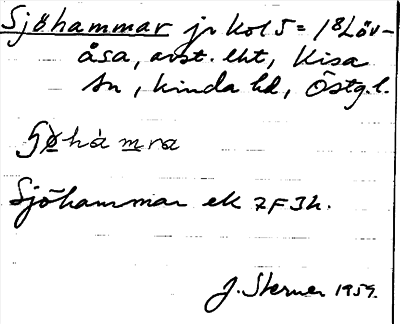 Sjöhammar jr kol 5 = 18 Löv-
åsa, avst. lht, Kisa
sn, Kinda hd, Östg.l.
hàmra
Sjöhammar ek 7F3h.
J. Sterner 1959.